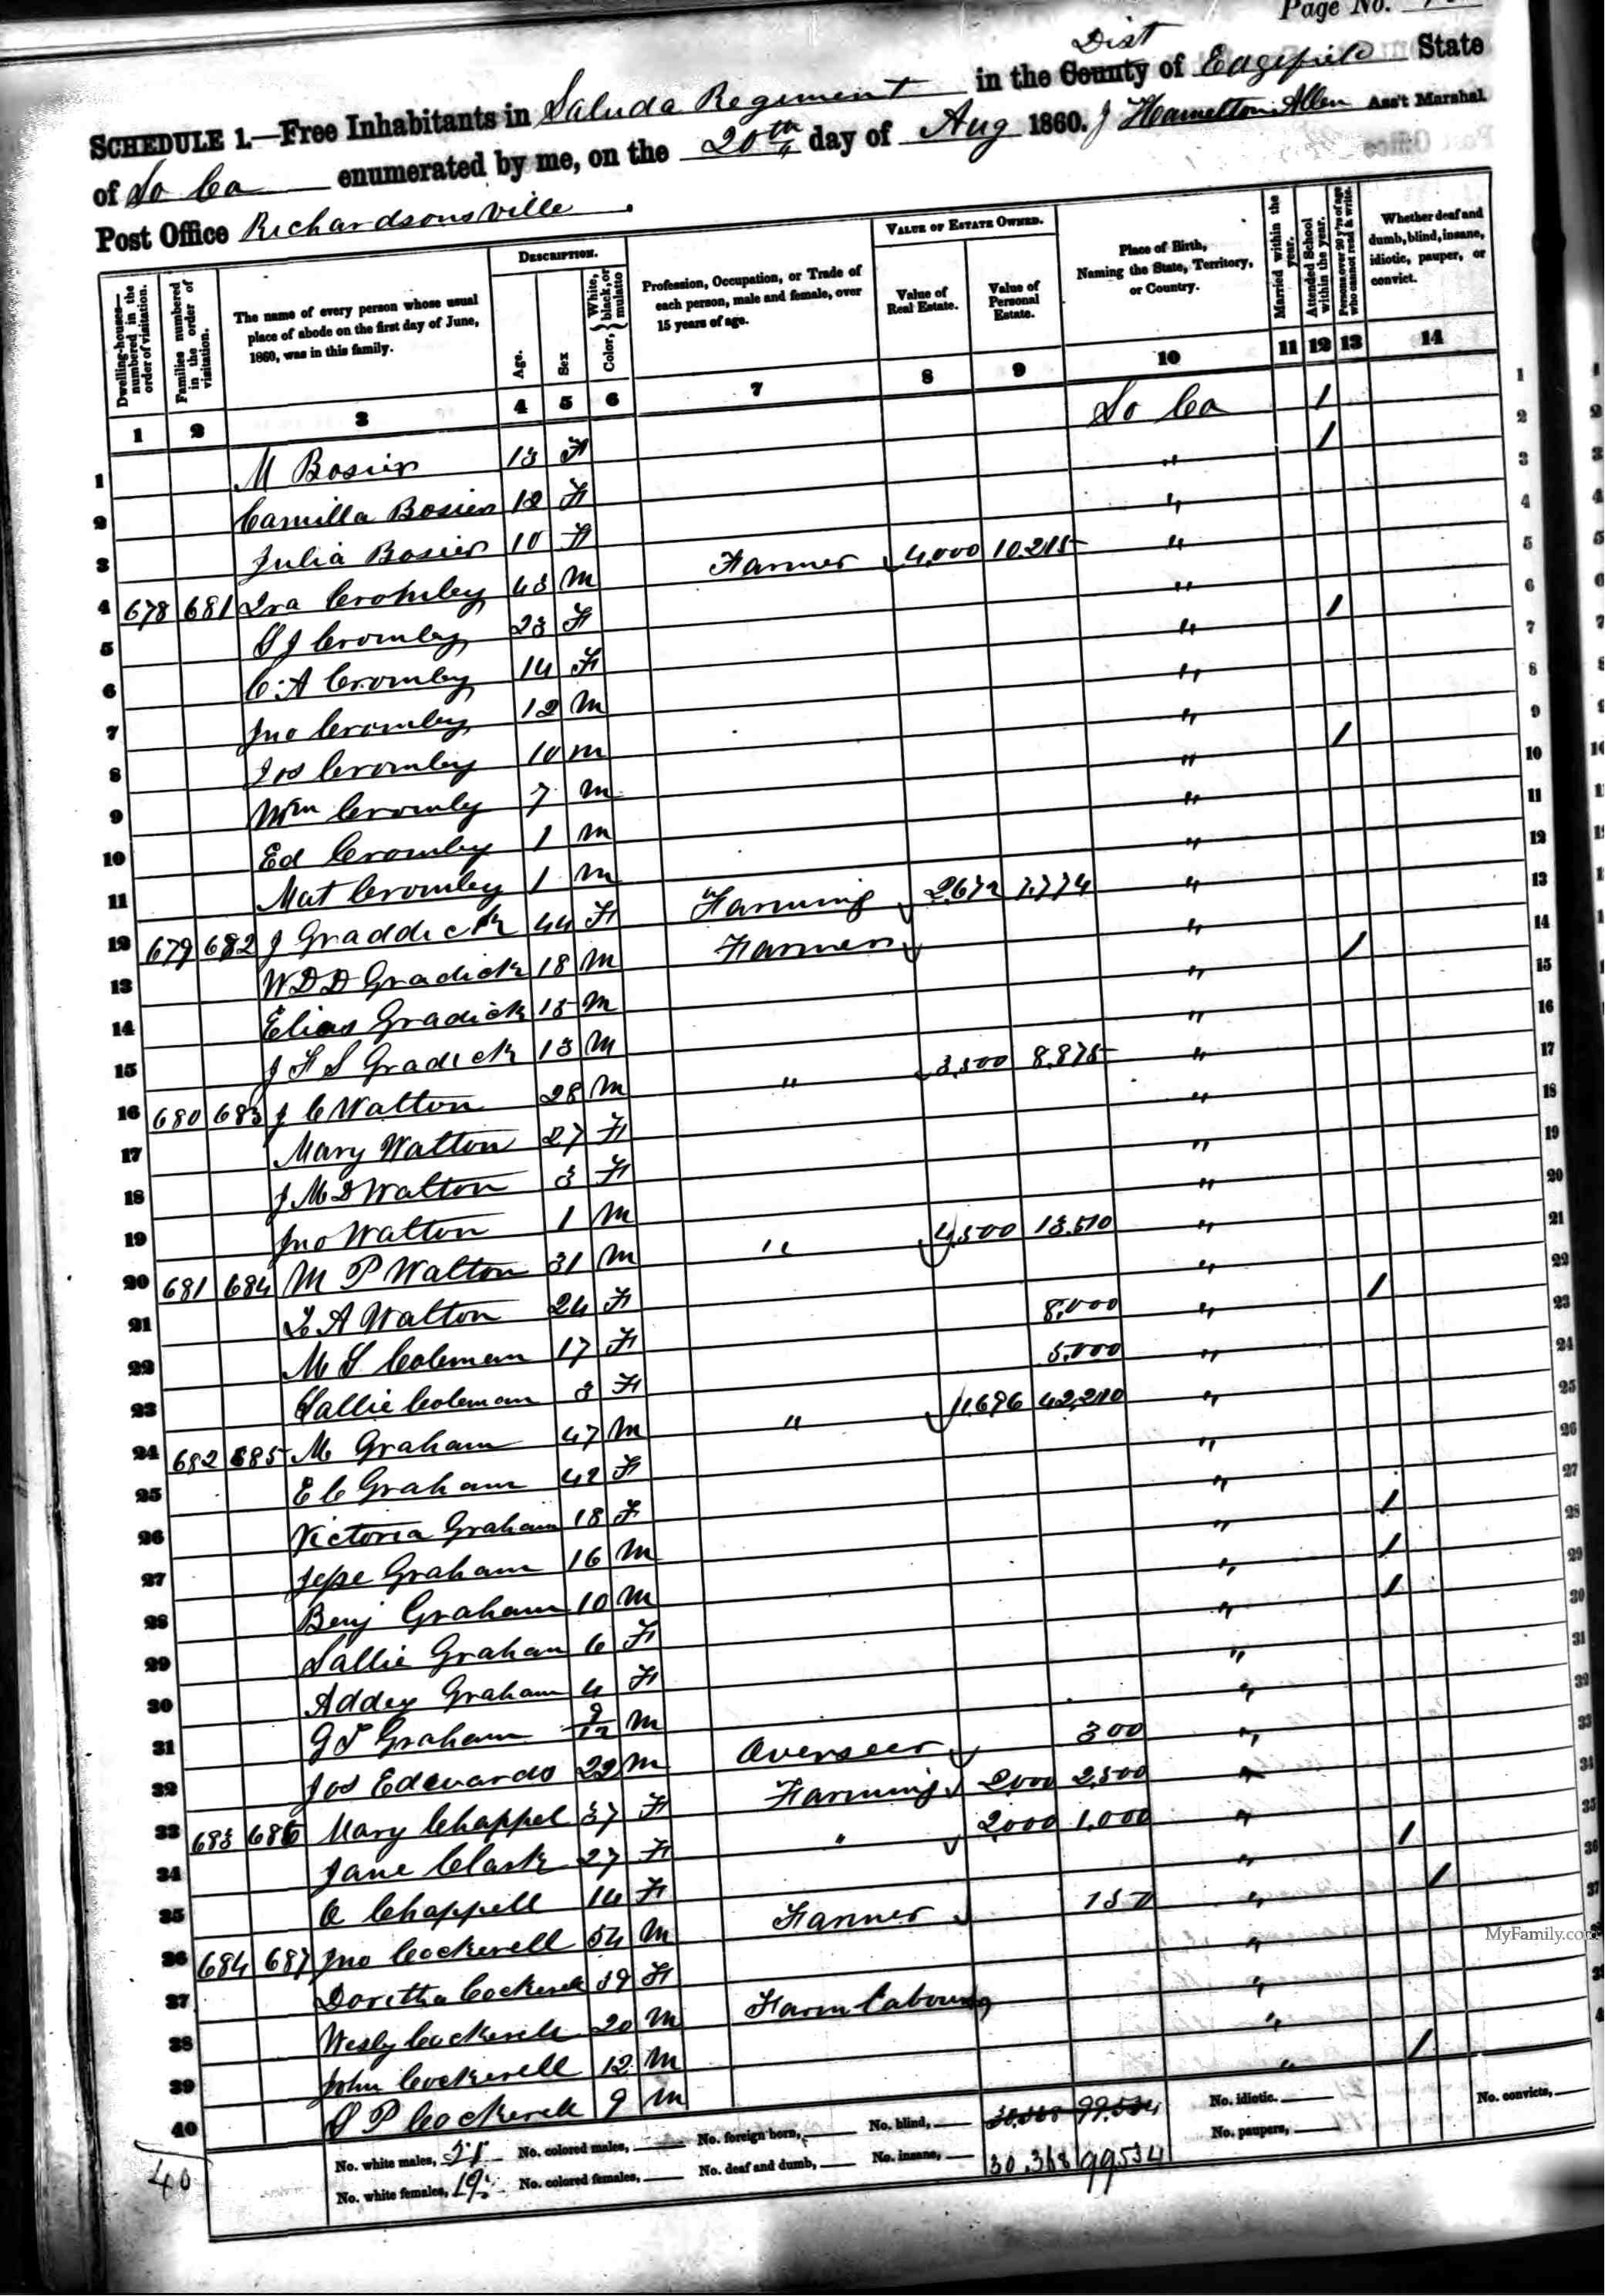 Page No.
SCHEDULE 1.—Free Inhabitants in Saluda Regiment in the County Dist of Edgefield State
of So Ca enumerated by me, on the 20th day of Aug 1860. J Hamelton Allen Ass't Marshal.
Post Office Richardsonsville.
DESCRIPTION.
VALUE OF ESTATE OWNED.
Dwelling-houses—numbered in the order of visitation.
Families numbered in the order of visitation.
The name of every person whose usual place of abode on the first day of June, 1860, was in this family.
Age.
Sex
Color, { White, black, or mulatto
Profession, Occupation, or Trade of each person, male and female, over 15 years of age.
Value of Real Estate.
Value of Personal Estate.
Place of Birth, Naming the State, Territory, or Country.
Married within the year.
Attended School within the year.
Persons over 20 y'rs of age who cannot read & write.
Whether deaf and dumb, blind, insane, idiotic, pauper, or convict.
1 2 3 4 5 6 7 8 9 10 11 12 13 14
1 M Bosier 13 F So Ca / 1
2 Camilla Bosier 12 F " / 2
3 Julia Bosier 10 F " 3
4 678 681 Ira Cromley 43 M Farmer 4,000 10,215 " 4
5 S J Cromley 23 F " 5
6 C. A Cromley 14 F " / 6
7 Jno Cromley 12 M " 7
8 Jos Cromley 10 M " 8
9 Wm Cromley 7 M " / 9
10 Ed Cromley 1 M " 10
11 Mat Cromley 1 M " 11
12 679 682 J Graddick 44 F Farming 2,672 7,774 " 12
13 W D D Gradick 18 M Farmer " 13
14 Elias Gradick 15 M " / 14
15 J F S Gradick 13 M " 15
16 680 683 J C Walton 28 M " 3,500 8,875 " 16
17 Mary Walton 27 F " 17
18 J M D Walton 3 F " 18
19 Jno Walton 1 M " 19
20 681 684 M P Walton 31 M " 4,500 13,510 " 20
21 L A Walton 24 F " 21
22 M S Coleman 17 F 8,000 " / 22
23 Sallie Coleman 3 F 5,000 " 23
24 682 685 M Graham 47 M " 11,696 42,210 " 24
25 E C Graham 42 F " 25
26 Victoria Graham 18 F " 26
27 Jesse Graham 16 M " / 27
28 Benj Graham 10 M " / 28
29 Sallie Graham 6 F " / 29
30 Addey Graham 4 F " 30
31 G T Graham 9/12 M " 31
32 Jos Edwards 22 M Overseer 300 " 32
33 683 686 Mary Chappel 37 F Farming 2,000 2,500 " 33
34 Jane Clark 27 F " 2,000 1,000 " 34
35 O Chappell 14 F " / 35
36 684 687 Jno Cockerell 54 M Farmer 150 " / 36
37 Doritha Cockerell 39 F " 37
38 Wesly Cockerell 20 M Farm Labouring "
39 John Cockerell 12 M "
40 S P Cockerell 9 M " /
No. white males, 21 No. colored males, No. foreign born, No. blind, 30,368 99,534 No. idiotic.
No. white females, 19 No. colored females, No. deaf and dumb, No. insane, 30,368 99534 No. paupers, No. convicts,
40
MyFamily.com